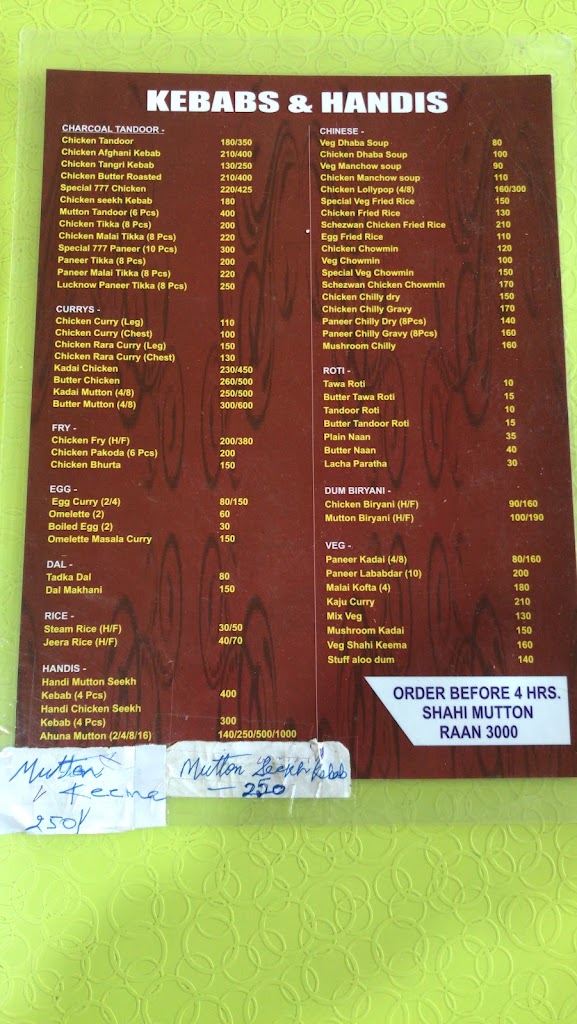 KEBABS & HANDIS
CHARCOAL TANDOOR -
Chicken Tandoor 180/350
Chicken Afghani Kebab 210/400
Chicken Tangri Kebab 130/250
Chicken Butter Roasted 210/400
Special 777 Chicken 220/425
Chicken seekh Kebab 180
Mutton Tandoor (6 Pcs) 400
Chicken Tikka (8 Pcs) 200
Chicken Malai Tikka (8 Pcs) 220
Special 777 Paneer (10 Pcs) 300
Paneer Tikka (8 Pcs) 200
Paneer Malai Tikka (8 Pcs) 220
Lucknow Paneer Tikka (8 Pcs) 250
CURRYS -
Chicken Curry (Leg) 110
Chicken Curry (Chest) 100
Chicken Rara Curry (Leg) 150
Chicken Rara Curry (Chest) 130
Kadai Chicken 230/450
Butter Chicken 260/500
Kadai Mutton (4/8) 250/500
Butter Mutton (4/8) 300/600
FRY -
Chicken Fry (H/F) 200/380
Chicken Pakoda (6 Pcs) 200
Chicken Bhurta 150
EGG -
Egg Curry (2/4) 80/150
Omelette (2) 60
Boiled Egg (2) 30
Omelette Masala Curry 150
DAL -
Tadka Dal 80
Dal Makhani 150
RICE -
Steam Rice (H/F) 30/50
Jeera Rice (H/F) 40/70
HANDIS -
Handi Mutton Seekh
Kebab (4 Pcs) 400
Handi Chicken Seekh
Kebab (4 Pcs) 300
Ahuna Mutton (2/4/8/16) 140/250/500/1000
CHINESE -
Veg Dhaba Soup 80
Chicken Dhaba Soup 100
Veg Manchow Soup 90
Chicken Manchow soup 110
Chicken Lollypop (4/8) 160/300
Special Veg Fried Rice 150
Chicken Fried Rice 130
Schezwan Chicken Fried Rice 210
Egg Fried Rice 110
Chicken Chowmin 120
Veg Chowmin 100
Special Veg Chowmin 150
Schezwan Chicken Chowmin 170
Chicken Chilly dry 150
Chicken Chilly Gravy 170
Paneer Chilly Dry (8Pcs) 140
Paneer Chilly Gravy (8Pcs) 160
Mushroom Chilly 160
ROTI -
Tawa Roti 10
Butter Tawa Roti 15
Tandoor Roti 10
Butter Tandoor Roti 15
Plain Naan 35
Butter Naan 40
Lacha Paratha 30
DUM BIRYANI -
Chicken Biryani (H/F) 90/160
Mutton Biryani (H/F) 100/190
VEG -
Paneer Kadai (4/8) 80/160
Paneer Lababdar (10) 200
Malai Kofta (4) 180
Kaju Curry 210
Mix Veg 130
Mushroom Kadai 150
Veg Shahi Keema 160
Stuff aloo dum 140
ORDER BEFORE 4 HRS.
SHAHI MUTTON
RAAN 3000
Mutton
Keema
250/
Mutton Seekh Kebab
— 250